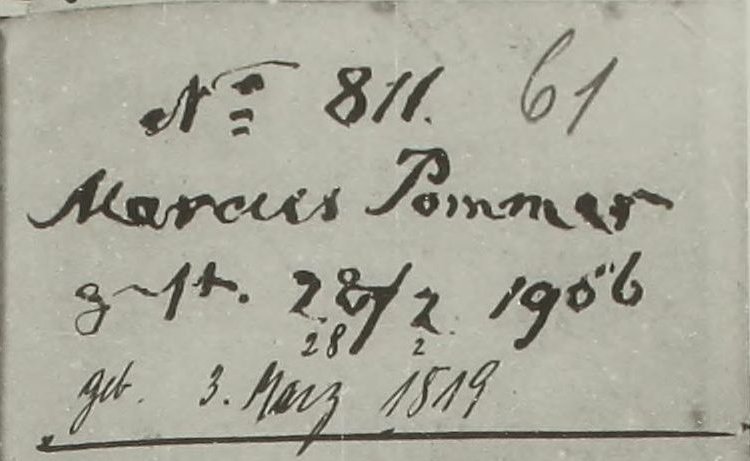 No 811. 61
Marcus Pommer
gest. 28/2. 1906
28 2
geb. 3. März 1819